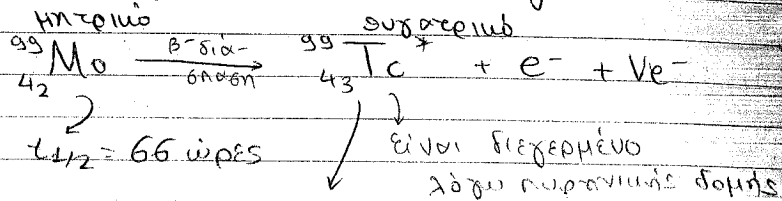 μητρικό θυγατρικό
⁹⁹₄₂Mo β⁻ διά-σπαση → ⁹⁹₄₃Tc* + e⁻ + νe⁻
t₁/₂ = 66 ώρες είναι διεγερμένο
λόγω πυρηνικής δομής